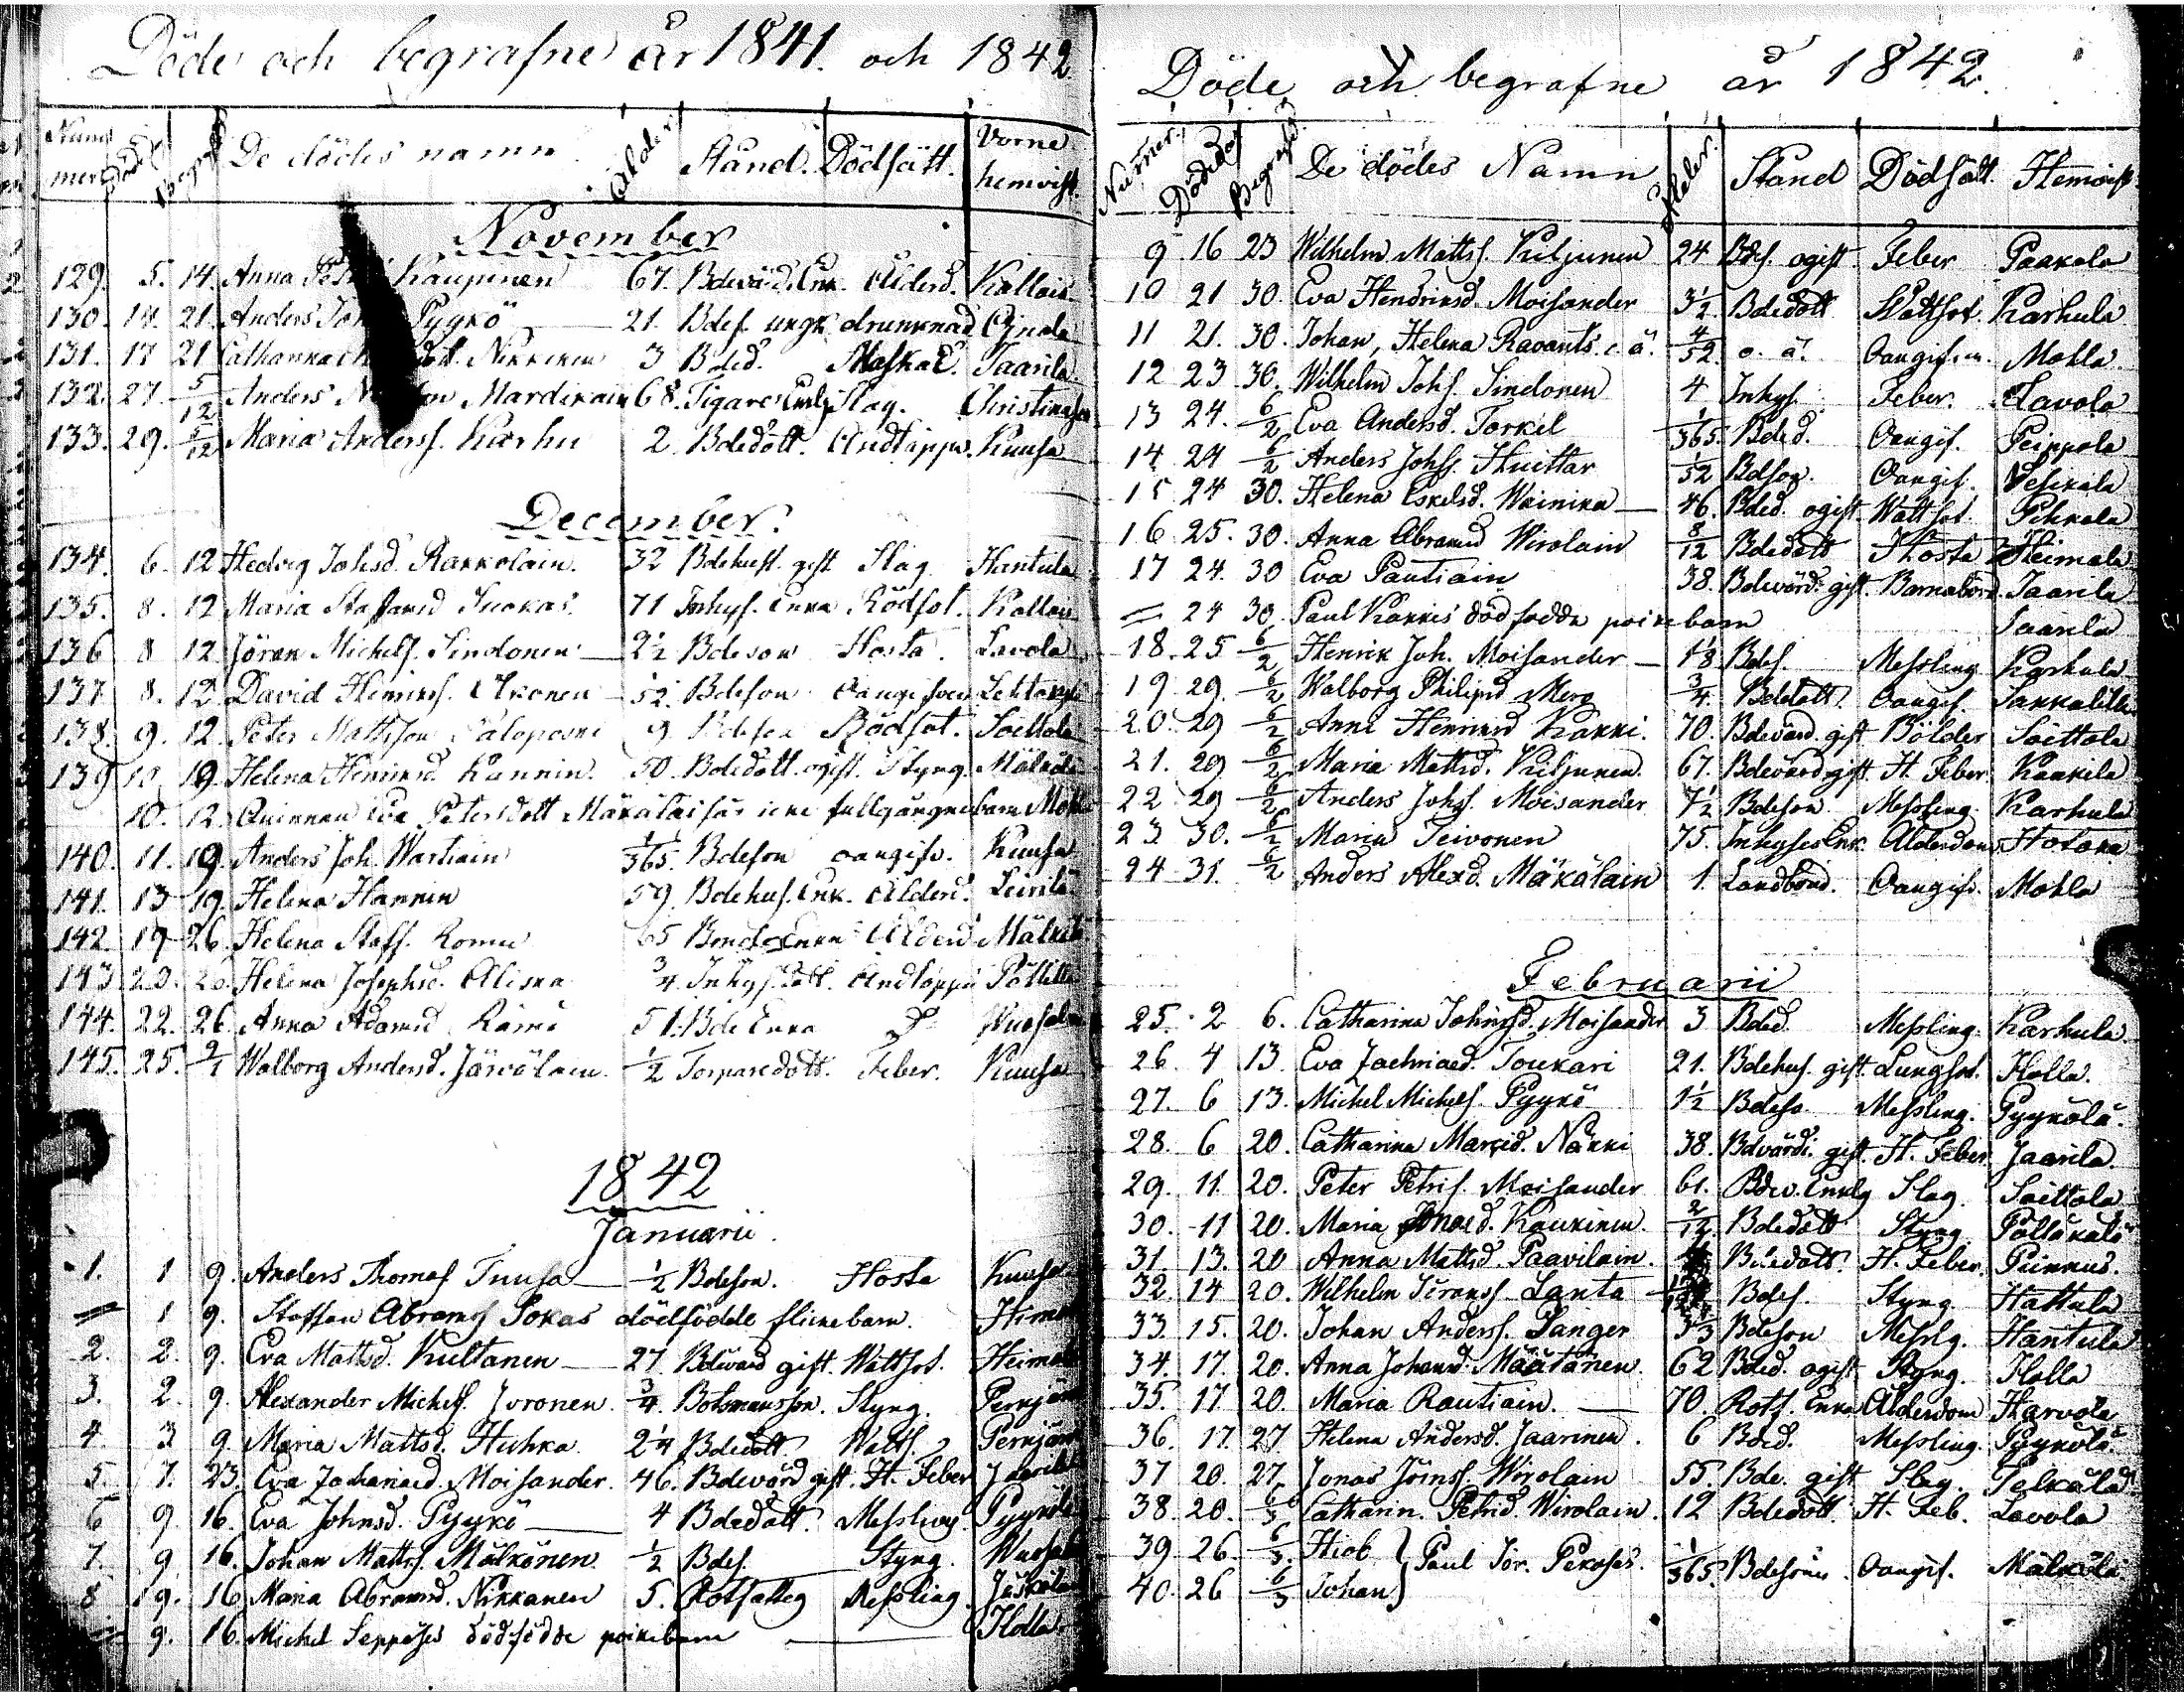 Döde och begrafne år 1841. och 1842
Nummer Döde Begr. De dödes namn. Ålder Stånd. Dödsätt. Vorne hemvist.
November
129. 5. 14. Anna Kauppinen 67. Bdevärd. Enk. Ålderd. Kallois
130. 14. 21. Anders Pyykö 21. Bdes. ungk. drunknad
131. 17 21 Catharina Nikkinen 3 Bded. Maskar. Jaarila
132. 27. 5/12 Anders Mardikain 68. Slag. Christin
133. 29. 5/12 Maria Anderss. Karhu 2. Bdedott. Andtäppa. Kuusa
December.
134. 6. 12 Hedvig Johsd. Rakkolain. 32 Bdehust. gift Slag Hantula
135. 8. 12 Maria Staffansd Suokas 71 Inhys. Enka Rödsot. Kallois
136 8 12 Jöran Michelss. Sindonen 2 1/2 Bdeson Hosta. Lavola
137. 8. 12 David Henrikss. Ikonen 1/52. Bdeson Oangifven
138. 9. 12. Peter Mattsson 9 Bdeson Rödsot. Soittola
139 10. 19. Helena Henriksd. Kannin. 50. Bdedott. ogift. Styng. Mälkölä
10. 12. Quinnan Eva Petersdott Mäkäläises icke fullgångne barn Mohla
140. 11. 19. Anders Joh. Wartiain 1/365. Bdeson oangifv. Kuusa
141. 13 19. Helena Hannin 59. Bdehus. Enk. Ålderd. Leinilä
142. 19 26. Helena Staff. Komu 65 Bonde Enka Ålderd Mälkölä
143. 20. 26. Helena Josephsd. Aliska 3/4 Inhys. dott. Andtäppa Pöllilä
144. 22. 26. Anna Adamsd Rämö 51. Bde Enka D:o Wuosalmi
145. 25. 2/1 Walborg Andersd. Järvöläin. 1/2 Torparedott. Feber. Kuusa
1842
Januarii.
1. 1 9. Anders Thomass Tuusa 1/2 Bdeson. Hosta Kuusa
= 1 9. Staffan Abramss Sokas dödfödde flickebarn. Heimala
2. 2. 9. Eva Mattsd. Kultanen 27 Bdevärd gift. Wattsot. Heimala
3. 2. 9. Alexander Michelss. Joronen. 3/4. Botsmansson. Styng. Perkjärvi
4. 3 9. Maria Mattsd. Huhka 2 1/4 Bdedott. Watts. Perkjärvi
5. 7. 23. Eva Zachariaed. Moisander. 46. Bdevärd gift. H. Feber Jaarila
6 9. 16. Eva Johnsd. Pyykö 4 Bdedott. Messling Pyykölä
7. 9 16. Johan Mattss. Mälkönen. 1/2 Bdes. Styng. Wuosalmi
8 9. 16. Maria Abramsd. Nikkanen 5. Rotfatteg Messling Jäskölä
= 9. 16. Michel Seppäses dödfödde poikebarn Holla
Döde och begrafne år 1842.
Numer. Dödsdag Begrafnd. De dödes Namn Ålder. Stånd Dödsätt. Hemvist
9. 16 23 Wilhelm Mattss. Kiljunen 24 Bdes. ogift. Feber Paakola
10 21 30. Eva Hendriksd. Moisander 3 1/2 Bdedott Wattsot. Karhula
11 21. 30. Johan, Helena Ravants. o. ä. 4/52 o. ä. Oangifven. Mohla
12 23 30. Wilhelm Johs. Sindonen 4 Inhys. Feber. Lavola
13 24. 6/2 Eva Andersd. Torkel 1/365. Bded. Oangif. Peippola
14 24 6/2 Anders Johss. Huittar 1/52 Bdson. Oangif. Vesikala
15 24 30. Helena Eskelsd. Wainika 46. Bded. ogift. Wattsot. Pihkala
16 25. 30. Anna Abramsd Wirolain 8/12 Bdedott Hosta Heimala
17 24. 30 Eva Pautiain 38. Bdevärd. gift. Barnabörd Jaarila
= 24 30. Paul Kakkis dödfödda poikebarn Jaarila
18. 25 6/2 Henrik Joh. Moisander 1 1/8. Bdes. Messling Karhula
19. 29. 6/2 Walborg Philipsd Mero 3/4. Bdedott. Oangif.
20. 29 6/2 Anna Henriksd Kakki. 70. Bdevärd. gift Bölder Soittola
21. 29 6/2 Maria Mattsd. Kiljunen. 67. Bdevärd. gift. H. Feber Kaukila
22 29 6/2 Anders Johss. Moisander 7 1/2 Bdeson. Messling. Karhula
23. 30. 6/2 Maria Teivonen 75. Inhyses Enk. Ålderdom Hotaka
24 31. 6/2 Anders Alexd. Mäkäläin 1. Landbond. Oangifv. Mohla
Februarii
25. 2 6. Catharina Johnssd. Moisander 3 Bded. Messling. Karhula
26. 4 13. Eva Zachriaed. Toukari 21. Bdehus. gift. Lungsot. Holla.
27. 6 13. Michel Michelss. Pyykö 1 1/2 Bdeso. Messling. Pyykölä.
28. 6 20. Catharina Marcid. Näkki 38. Bdvärdi. gift. H. Feber Jaarila.
29. 11. 20. Peter Petris. Moisander 61. Bdev. Enklg Slag. Soittola
30. 11 20. Maria Kaukinen. 2/12. Bdedott Styng. Pölläkälä
31. 13. 20 Anna Mattsd. Paavilain. Bdedott. H. Feber. Punnus.
32. 14 20. Wilhelm Jöranss. Lanta Bdes. Styng. Hattula
33. 15. 20. Johan Anderss. Langer 3 1/3 Bdeson Messlg. Hantula
34. 17. 20. Anna Johansd. Määtänen. 62 Bded. ogift Styng. Holla
35. 17 20. Maria Rautiain. 70. Rots. Enka Ålderdom Harvola
36. 17. 27. Helena Andersd. Jaarinen. 6 Bded. Messling. Pyykölä.
37 20. 27. Jonas Jönss. Wirolain 55. Bde. gift Slag.
38. 20. 6/3 Catharin. Petrid. Wirolain. 12 Bdedott. H. Feb. Lavola
39 26. 6/3. Hiob } Paul Jör. Pekoses. 1/365. Bdesöner. Oangif. Mälkölä
40. 26 6/3 Johan